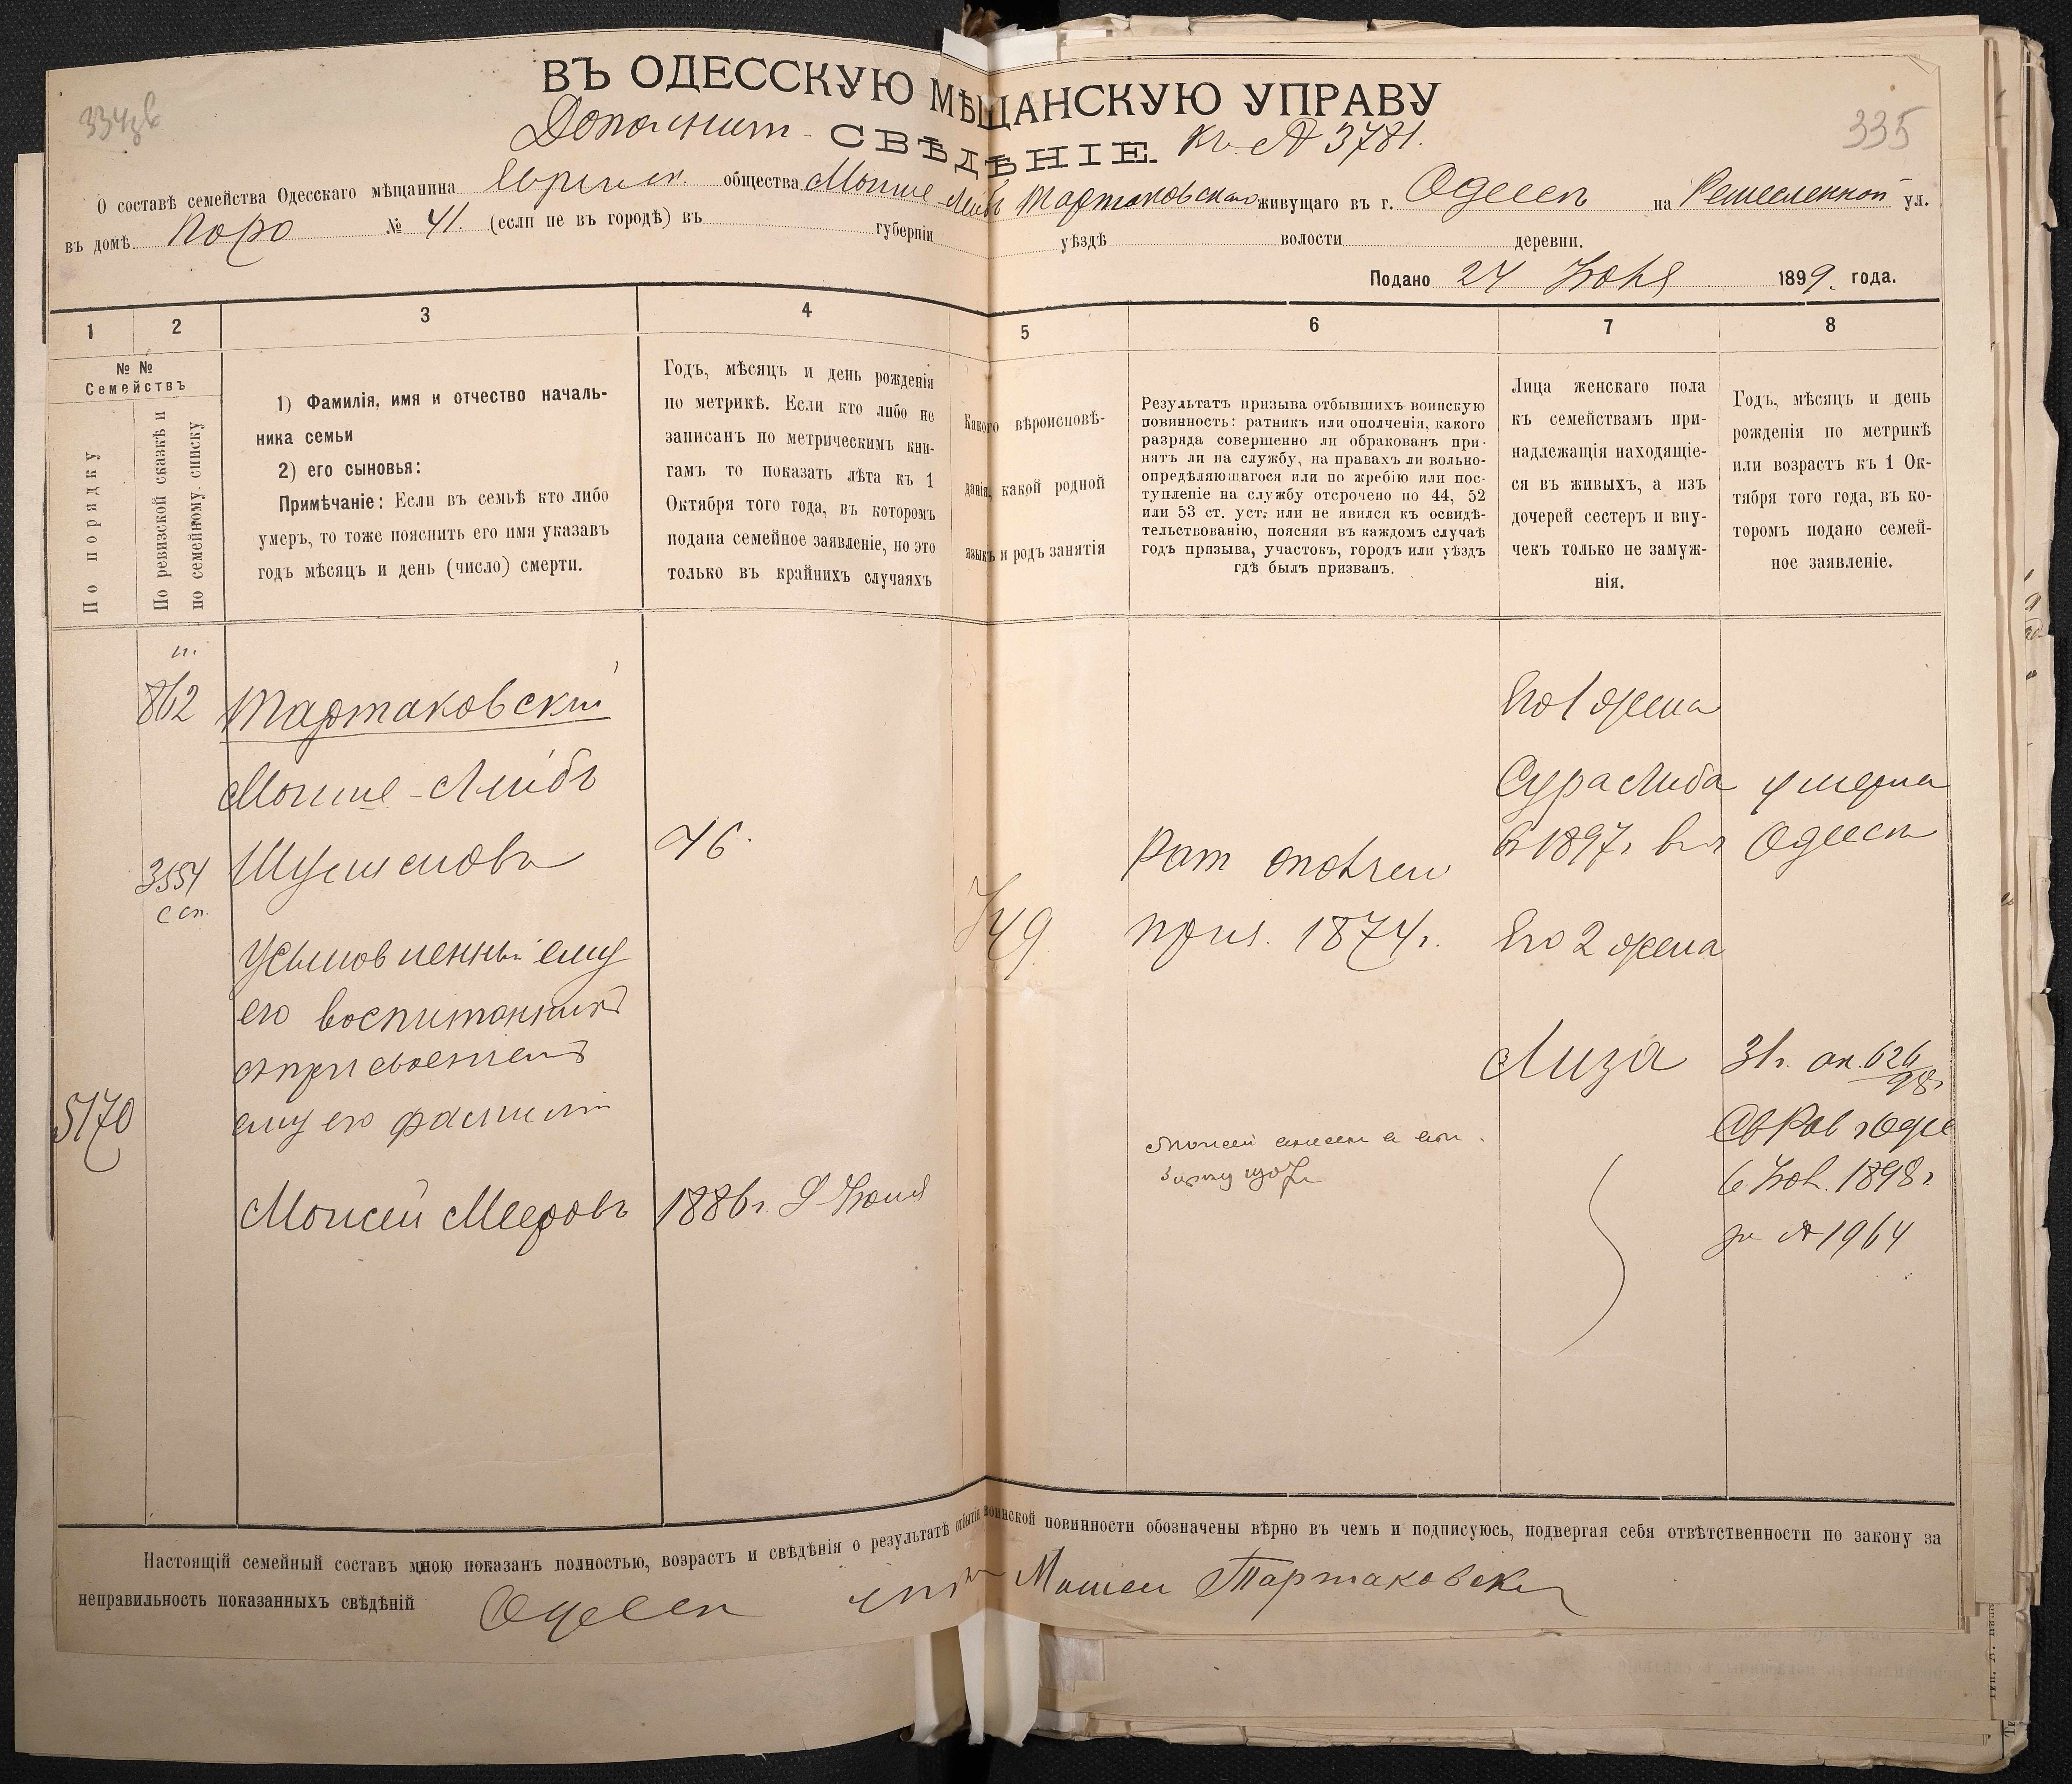 ВЪ ОДЕССКУЮ МѢЩАНСКУЮ УПРАВУ
Дополнит- СВѢДѢНІЕ. къ № 3781.
335
О составѣ семейства Одесскаго мѣщанина Еврейск. общества Мошие Лейбъ Тартаковскаго живущаго въ г. Одессѣ на Ремесленной ул.
въ домѣ Коро № 41. (если не въ городѣ) въ губерніи уѣздѣ волости деревни.
Подано 24 Ноя 1899. года.
1 2 3 4 5 6 7 8
№ №
Семействъ
По порядку
По ревизской сказкѣ и
по семейному списку
1) Фамилія, имя и отчество началь-
ника семьи
2) его сыновья:
Примѣчаніе: Если въ семьѣ кто либо
умеръ, то тоже пояснить его имя указавъ
годъ мѣсяцъ и день (число) смерти.
Годъ, мѣсяцъ и день рожденія
по метрикѣ. Если кто либо не
записанъ по метрическимъ кни-
гамъ то показать лѣта къ 1
Октября того года, въ которомъ
подана семейное заявленіе, но это
только въ крайнихъ случаяхъ
Какого вѣроисповѣ-
данія, какой родной
языкъ и родъ занятія
Результатъ призыва отбывшихъ воинскую
повинность: ратникъ или ополченія, какого
разряда совершенно ли обракованъ при-
нятъ ли на службу, на правахъ ли вольно-
опредѣляющагося или по жребію или пос-
тупленіе на службу отсрочено по 44, 52
или 53 ст. уст; или не явился къ освидѣ-
тельствованію, поясняя въ каждомъ случаѣ
годъ призыва, участокъ, городъ или уѣздъ
гдѣ былъ призванъ.
Лица женскаго пола
къ семействамъ при-
надлежащія находящіе-
ся въ живыхъ, а изъ
дочерей сестеръ и вну-
чекъ только не замуж-
нія.
Годъ, мѣсяцъ и день
рожденія по метрикѣ
или возрастъ къ 1 Ок-
тября того года, въ ко-
торомъ подано семей-
ное заявленіе.
862 Тартаковскій Его 1 жена
Мошие-Лейбъ Сура Либа умерла
Шулимовъ 46. в 1897г. въ г Одессѣ
3554
с сп.
Рат ополчен
приз. 1874г. Его 2 жена
749
Усыновленный ему
его воспитанникъ
съ присвоеніемъ Лиза 31г.
5170 ему его фамиліи
Св Рав г Одес
Моисей Мееровъ 1886г. Іюня 6 Ноя. 1898г
за № 1964
Настоящій семейный составъ мною показанъ полностью, возрастъ и свѣдѣнія о результатѣ отбытія воинской повинности обозначены вѣрно въ чемъ и подписуюсь, подвергая себя отвѣтственности по закону за
неправильность показанныхъ свѣдѣній Одесск Мошеи Тартаковски